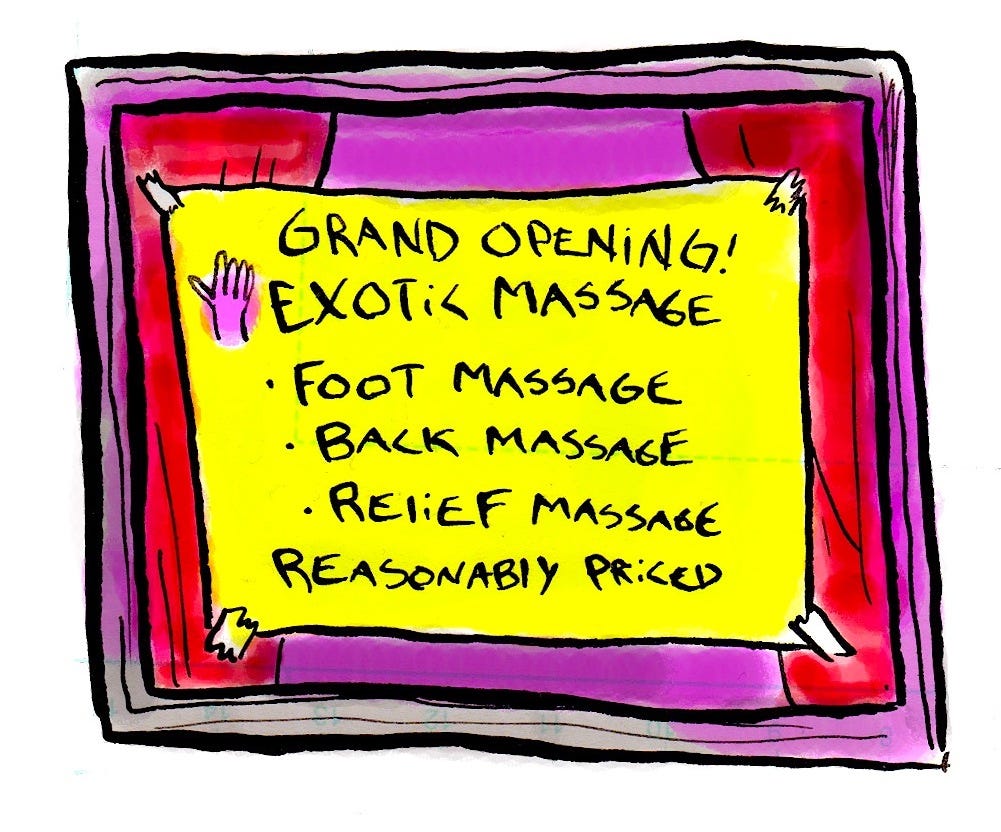 GRAND OPENING!
EXOTIC MASSAGE
· FOOT MASSAGE
· BACK MASSAGE
· RELIEF MASSAGE
REASONABLY PRICED